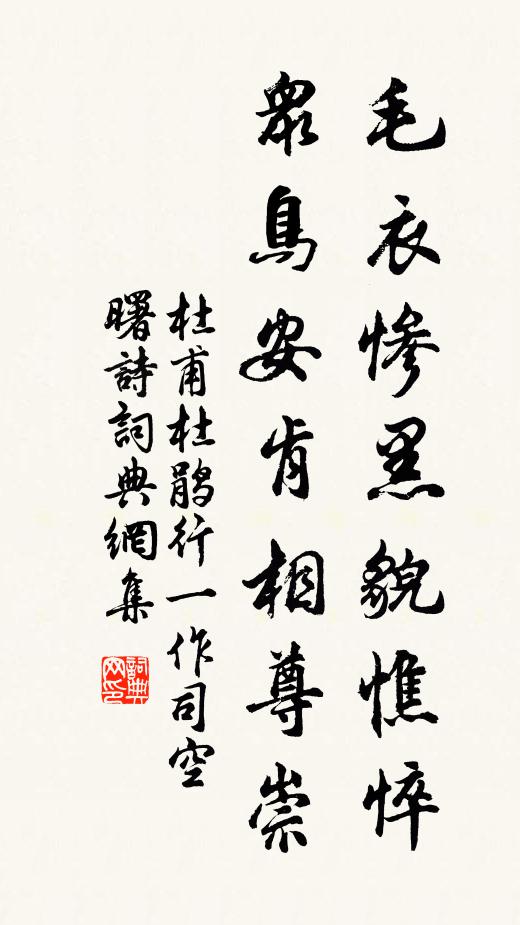 毛衣慘黑貌憔悴
眾鳥安肯相尊崇
杜甫杜鹃行一作司空
曙詩詞典網集
詞典網印